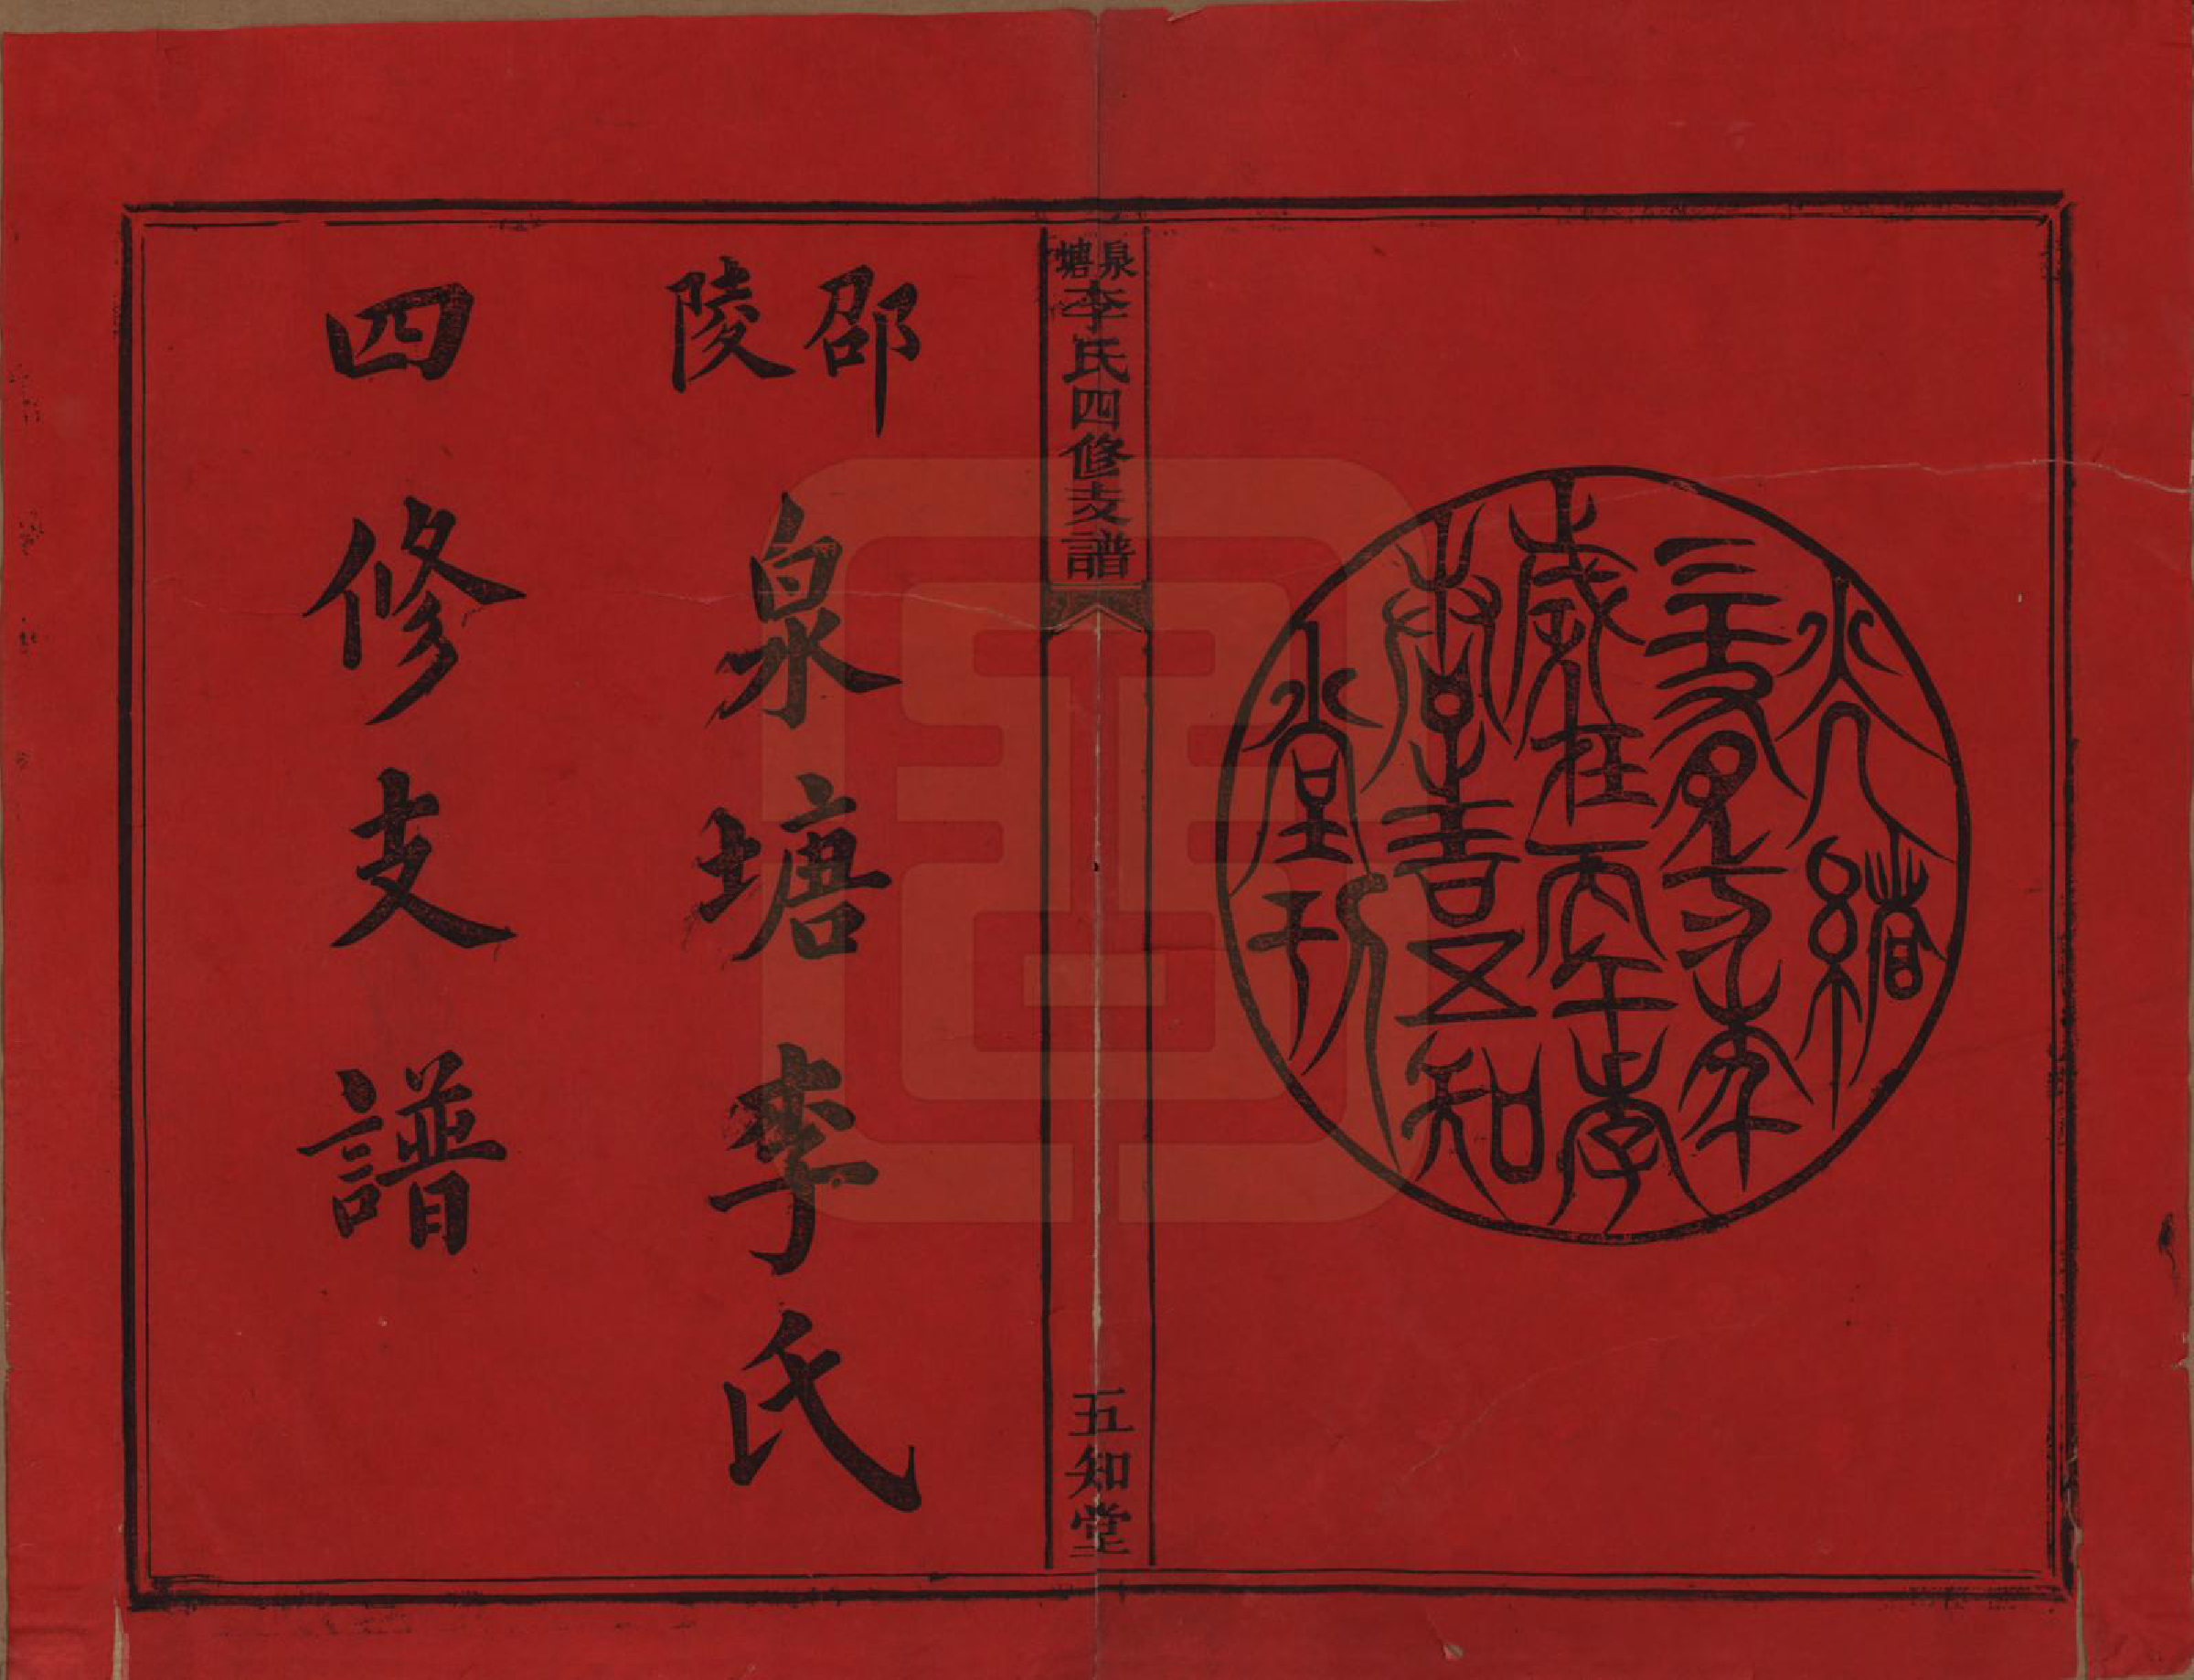 光緒
三十年
歲在丙午
吉五知
堂刊
泉塘李氏四修支譜
五知堂
邵陵
泉塘李氏
四修支譜